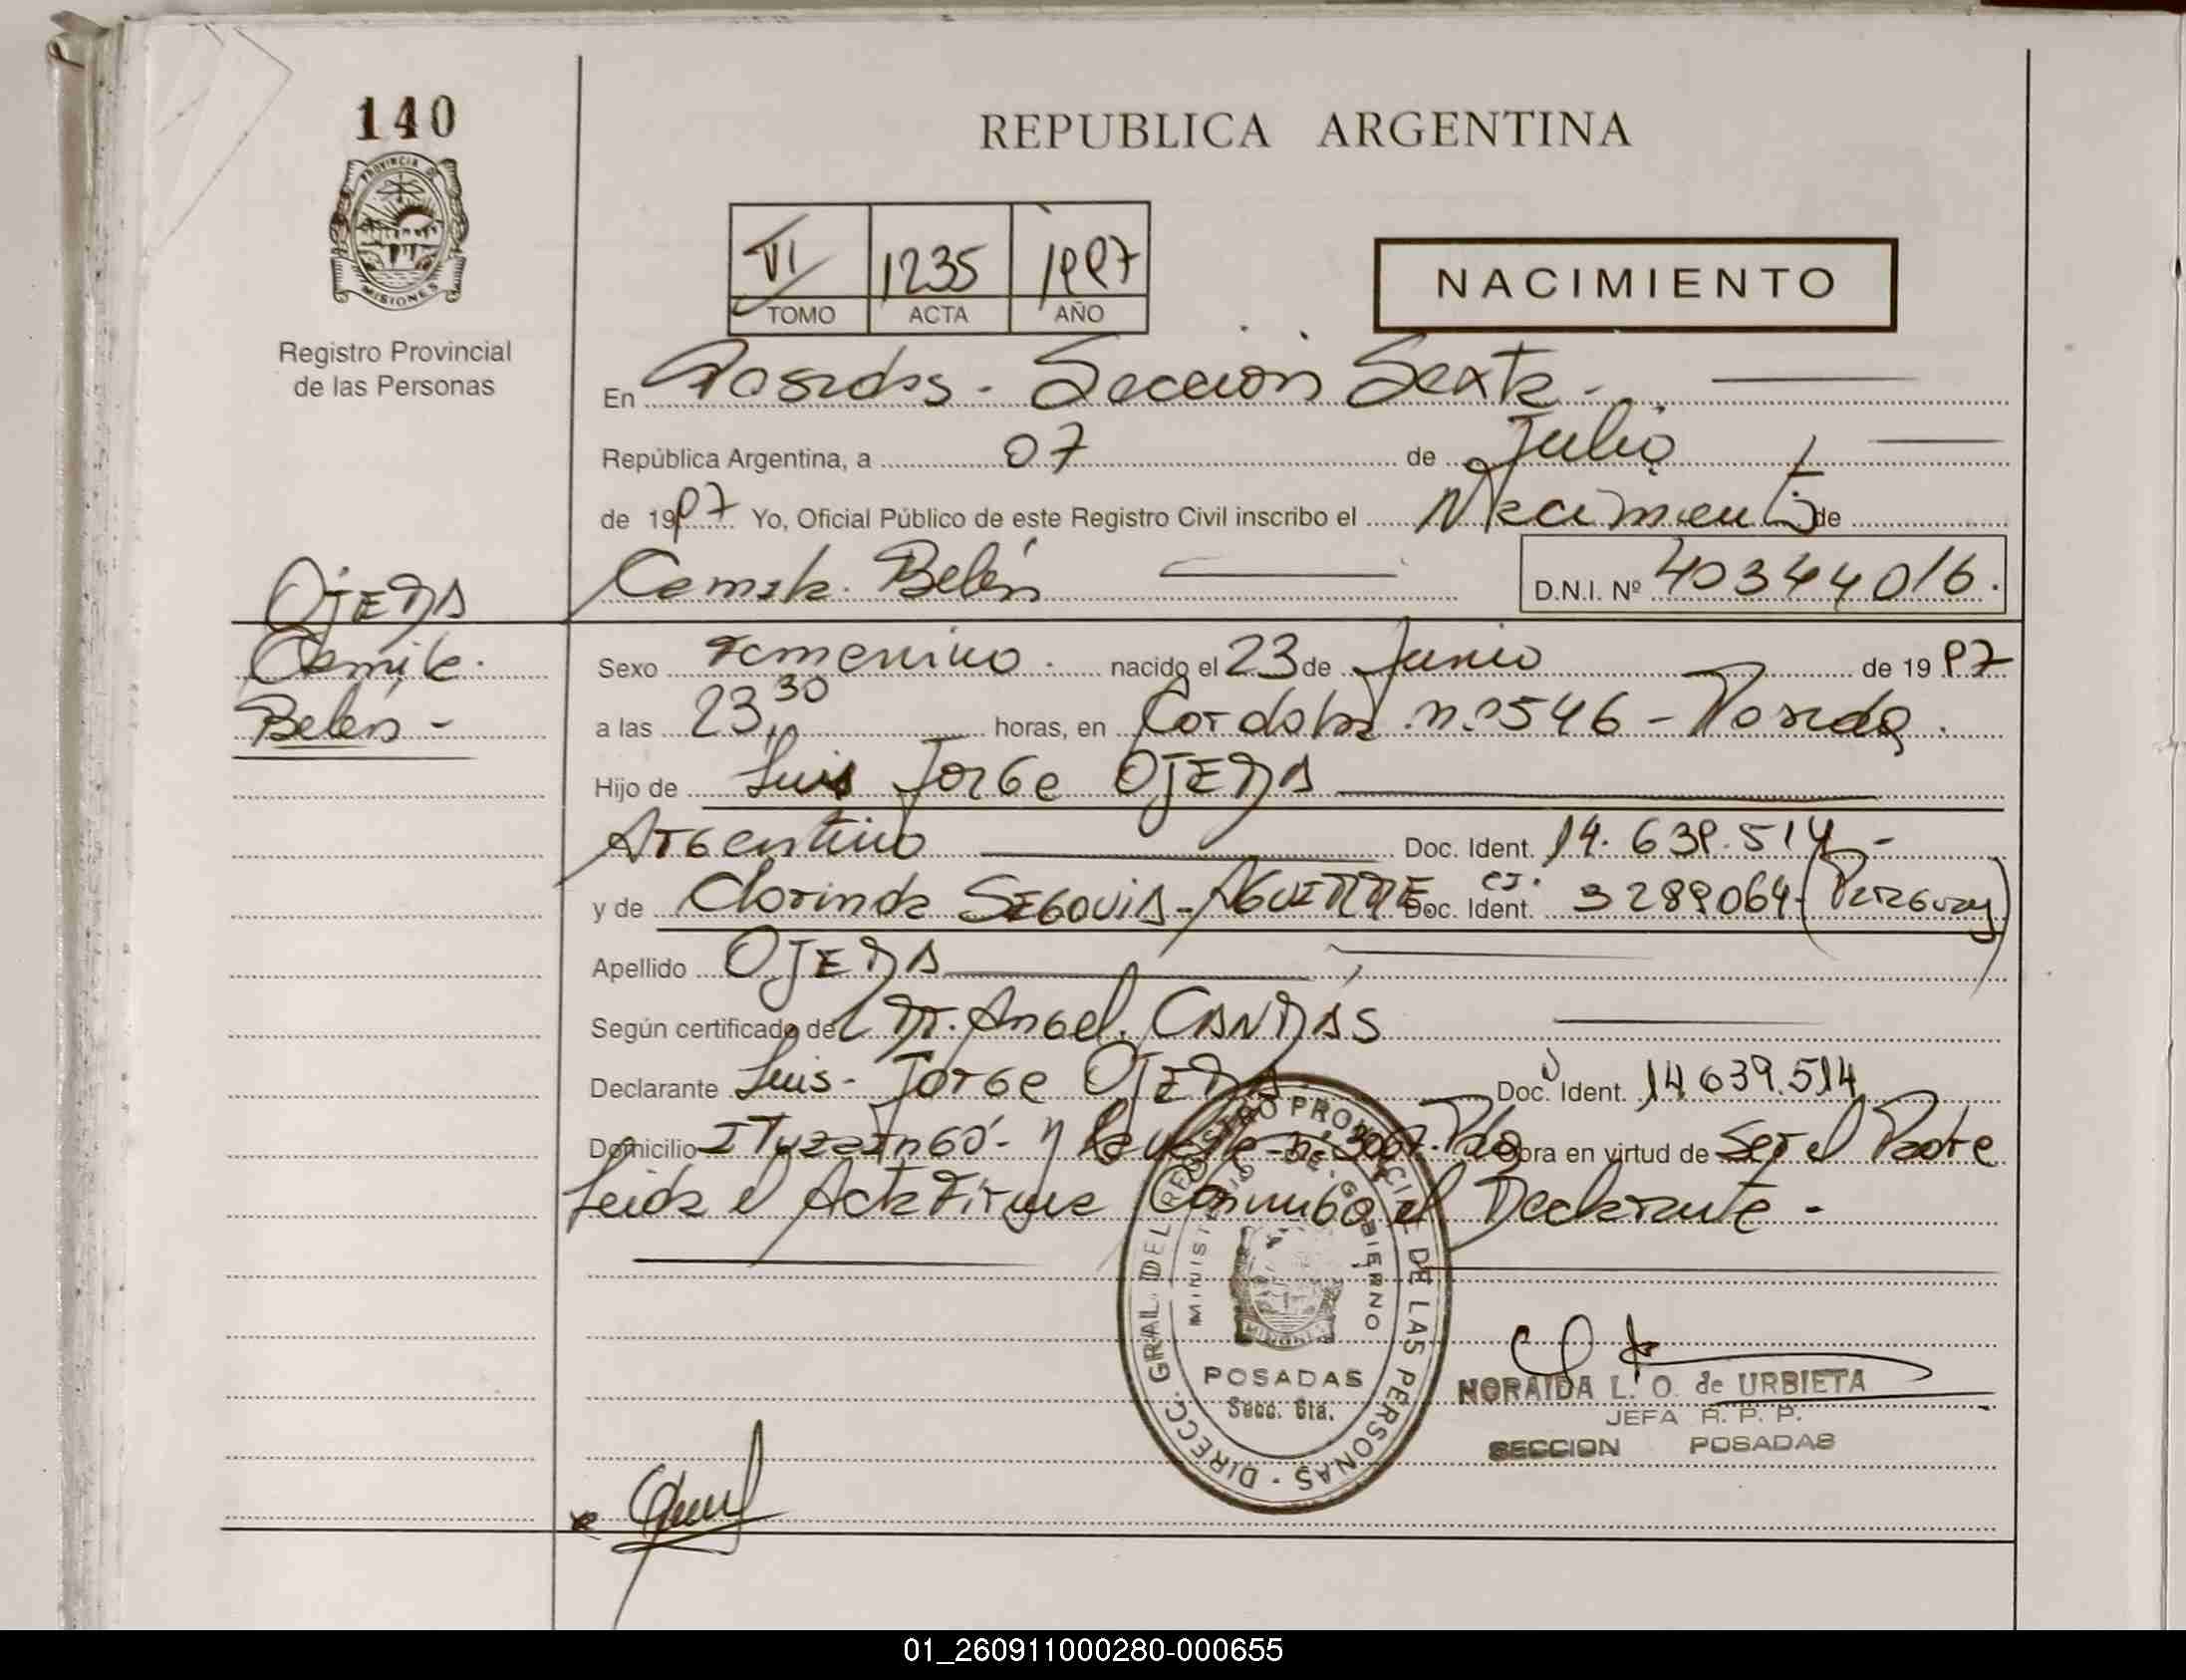 140
PROVINCIA DE
MISIONES
Registro Provincial
de las Personas
REPUBLICA ARGENTINA
VI 1235 1997
TOMO ACTA AÑO
NACIMIENTO
En Posadas - Sección Sexta -
República Argentina, a 07 de Julio
de 1997 Yo, Oficial Público de este Registro Civil inscribo el Nacimiento de
Camila Belén D.N.I. Nº 40344016.
OJEDA
Camila
Belén -
Sexo Femenino. nacido el 23 de Junio de 1997
a las 23,30 horas, en Cordoba nº 546 - Posadas.
Hijo de Luis Jorge OJEDA
Argentino Doc. Ident. 14.639.514 -
y de Clorinda SEGOVIA - AGUIRRE Doc. Ident. CI. 3289064 (Paraguay)
Apellido OJEDA
Según certificado del Dr. Angel
Declarante Luis - Jorge OJEDA Doc. Ident. 14.639.514
Domicilio Ituzaingó - y nº 3067. Pdas Obra en virtud de Ser el Padre
Leida el Acta Firma Conmigo el Declarante -
DIRECC. GRAL. DEL REGISTRO PROVINCIAL DE LAS PERSONAS
MINISTERIO DE GOBIERNO
MISIONES
POSADAS
Secc. 6ta.
NORAIDA L. O. de URBIETA
JEFA R. P. P.
SECCION POSADAS
01_260911000280-000655